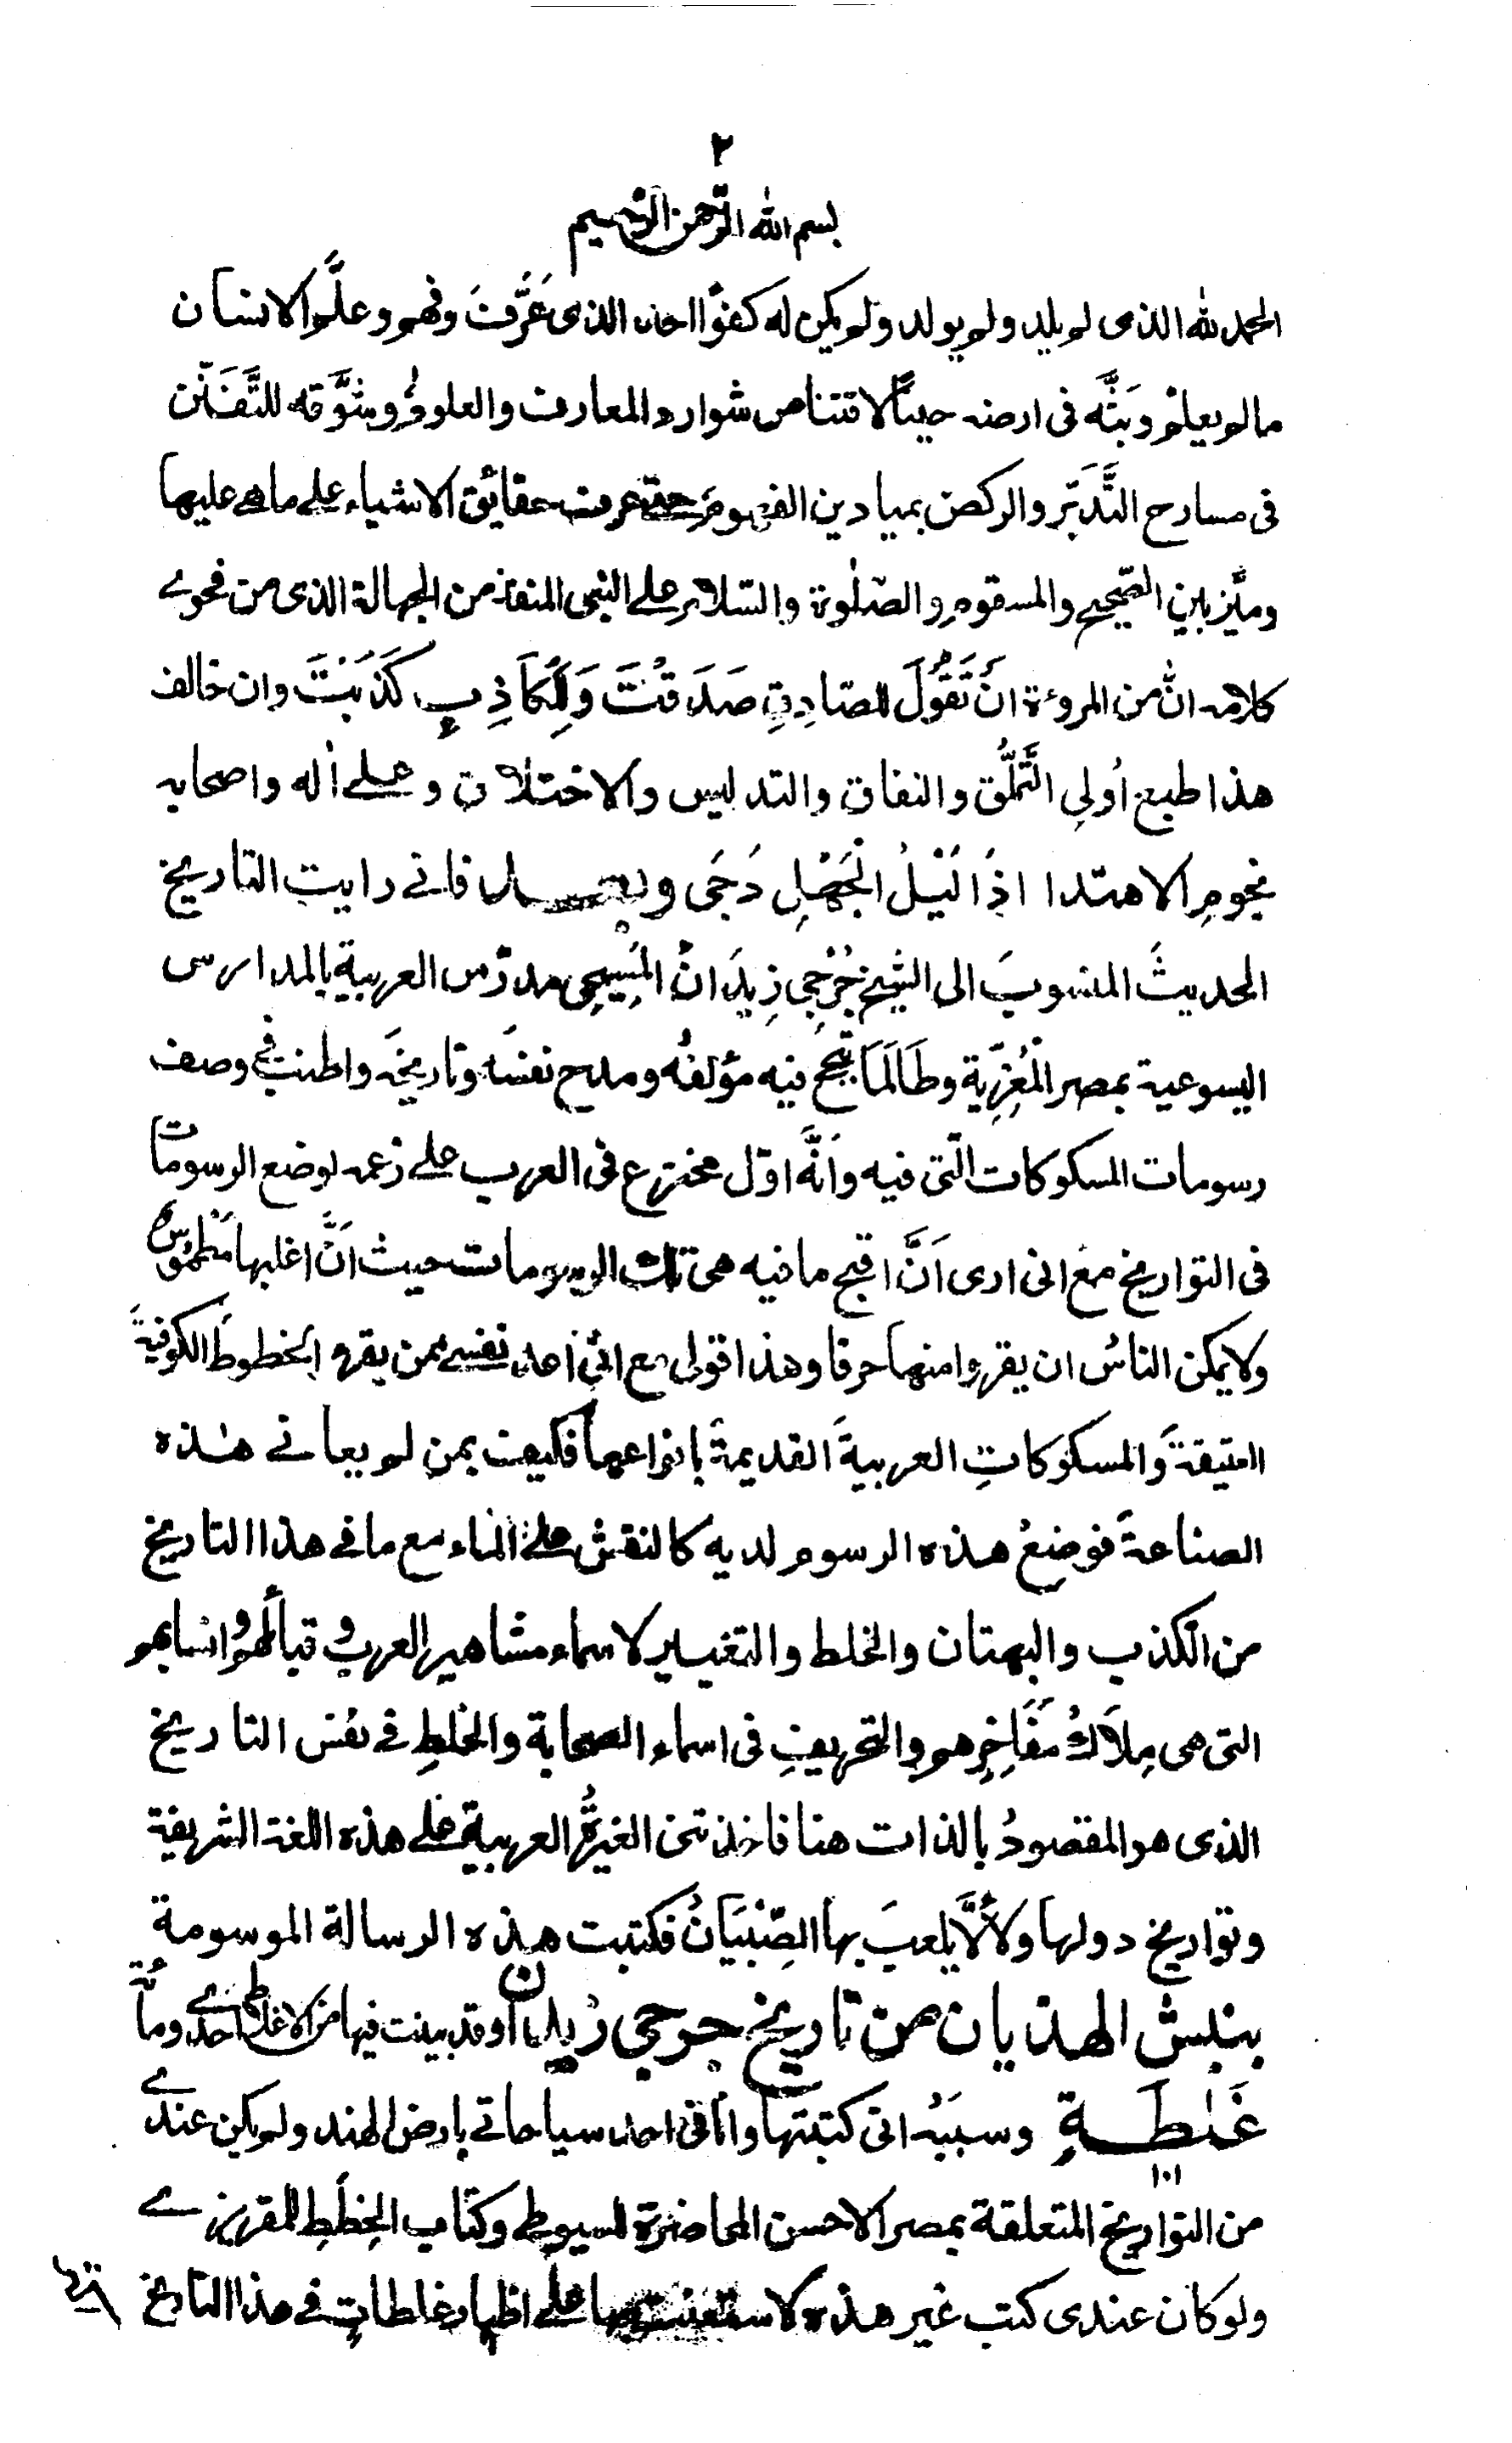 ٢
بسم الله الرحمن الرحيم
الحمد لله الذى لم يلد ولم يولد ولم يكن له كفوًا احد الذى عَرَّفَ وفهم وعلَّم الانسان
ما لم يعلم وبَثَّه فى ارضه حيثًا لاقتناص شوارد المعارف والعلوم وشَوَّقه للتَّفَنّن
فى مسارح التَّدَبّر والركض بميادين الفهوم حتے عرف حقائق الاشياء علے ماهے عليها
وميَّز بين الصّحيح والمسقوم والصّلٰوة والسّلام علے النبى المنقذ من الجهالة الذى من فحوے
كلامه انّ من المروءة انْ تَقُوْلَ للصّادِقِ صَدَقْتَ وَلِلْكَاذِبِ كَذَبْتَ وان خالف
هذا طبع اُولِى التَّمَلُّق والنفاق والتدليس والاختلاق وعلے اٰله واصحابه
نجوم الاهتدا اذَا لَيْلُ الْجَهْلِ دَجَى وبعد فانے رايت التاريخ
الحديثَ المنسوبَ الى الشيخ جُرْجِى زِيدَانْ المَسِيحِى مدرّس العربية بالمدارس
اليسوعية بمصر الْمُعِزِّية وطَالَمَا تبجح فيه مؤلفُه ومدح نفسَه وتاريخَه واطنب فے وصف
رسومات المسكوكات الّتى فيه وَاَنَّه اوّل مخترع فى العرب علے زعمه لوضع الرسومات
فى التواريخ مع انى ارى اَنَّ اقبح ما فيه هى تلك الرسومات حيث اَنَّ اغلبها مَطْمُوْسٌ
ولا يمكن الناسُ ان يقرءوا منها حرفا وهذا قولى مع انّى اعد نفسے ممن يقرء الخطوطَ الكوفيةَ
العتيقةَ وَالمسكوكاتِ العربيةَ القديمةَ بانواعها فكيف بمن لم يعانے هٰذه
الصناعةَ فوضعُ هذه الرسوم لديه كالنقش علے الماء مع ما فے هذا التاريخ
من الكذب والبهتان والخلط والتغيير لاسماء مشاهير العرب و قبائلهم وانسابهم
التى هى مِلَاكُ مَفَاخِرِهم والتحريفِ فى اسماء الصحابة والخلطِ فے نفس التاريخ
الذى هو المقصودُ بالذات هنا فاخذتنى الغيرةُ العربية علے هذه اللغة الشريفة
وتواريخ دولها ولأَلَّا يلعبَ بها الصِّبْيَانُ فكتبت هذه الرسالة الموسومة
بنبش الهذيان من تاريخ جرجى زيدان وقد بينت فيها من الاغلاط احدے ومأة
غَلطَةٍ وسبَبُه انى كتبتها وانا فى احد سياحاتے بارض الهند ولم يكن عندے
١٠١
من التواريخ المتعلقة بمصر الا حسن المحاضرة للسيوطے وكتاب الخِطَطِ للمقريزے
ولو كان عندى كتب غير هذه لاستعنت بها علے اظهار غلطاتٍ فے هذا التاريخ